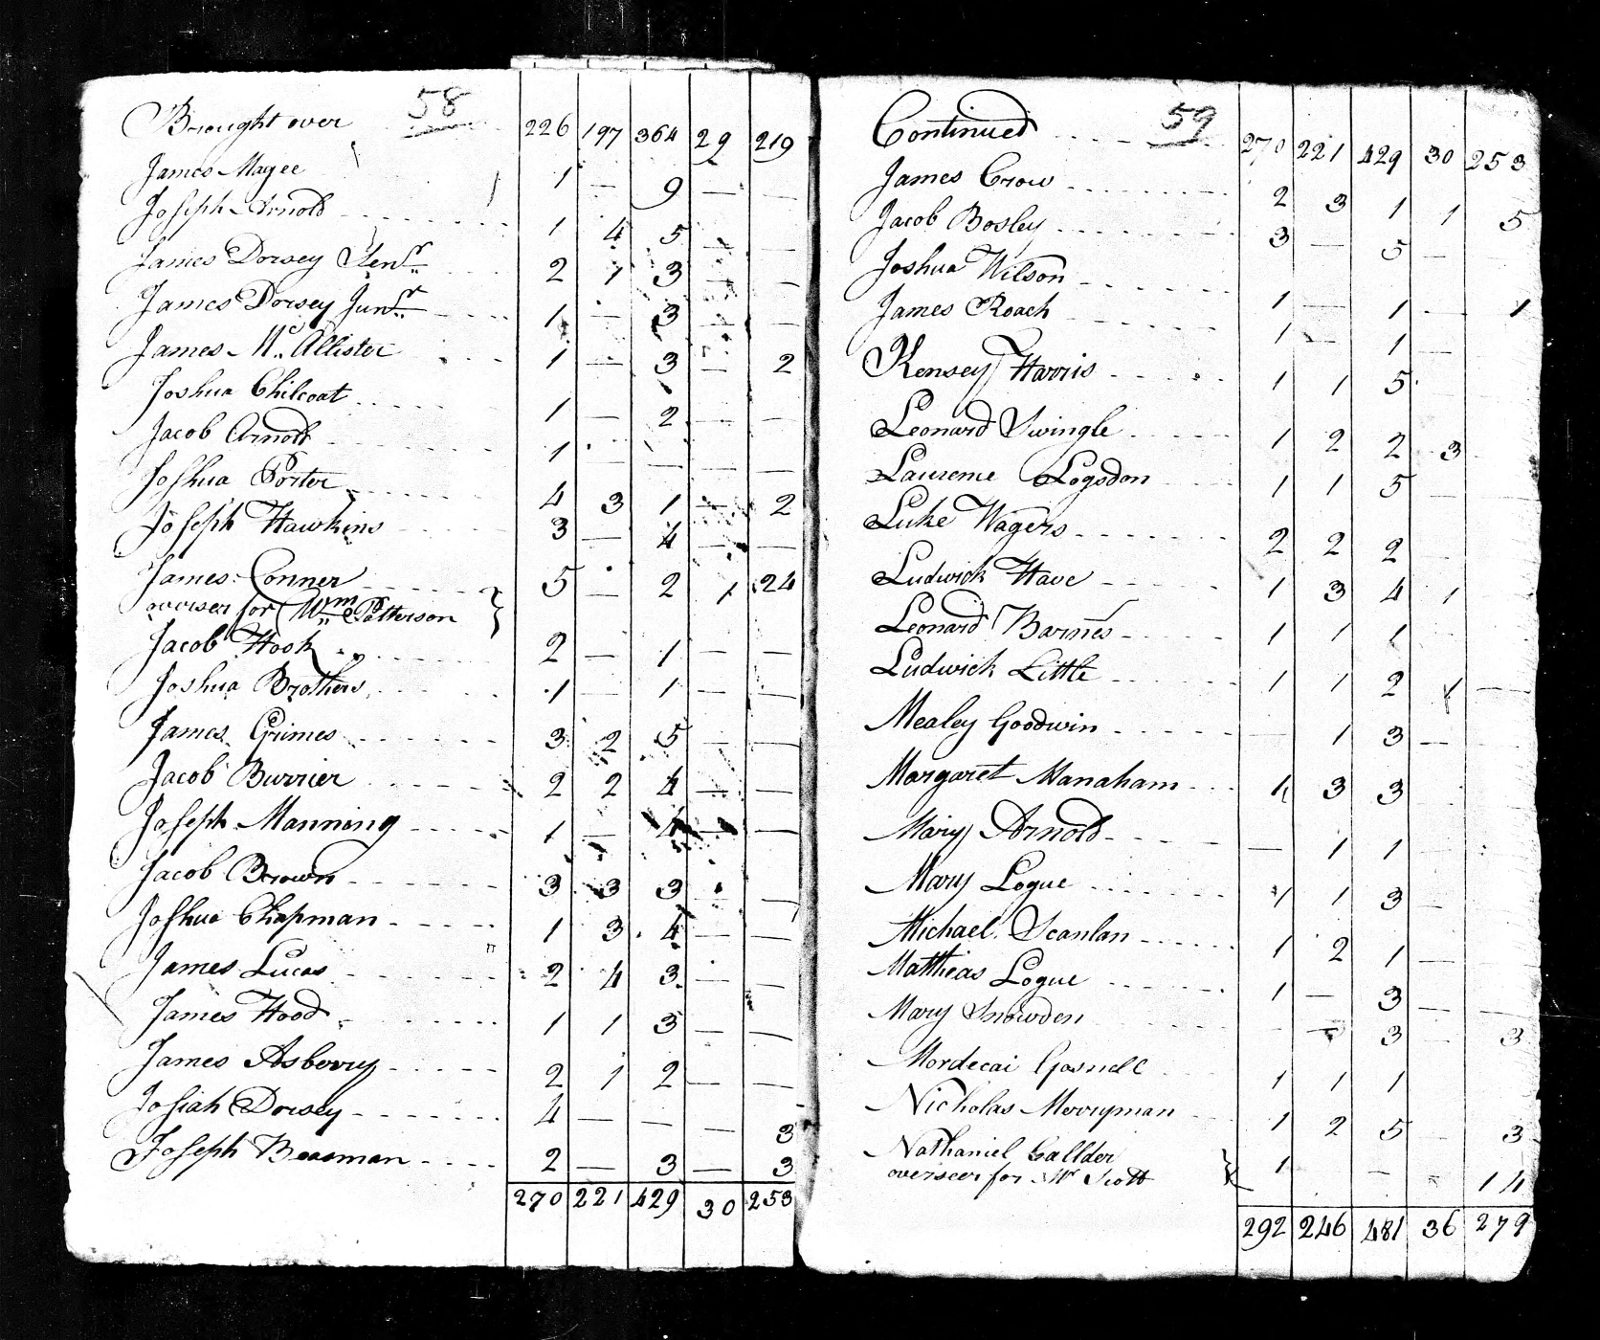 Brought over 58 226 197 364 29 219
James Magee 1 — 9 — —
Joseph Arnold 1 4 5 — —
James Dorsey Senr. 2 1 3 — —
James Dorsey Junr. 1 — 3 — —
James Mc. Allister 1 — 3 — 2
Joshua Chilcoat 1 — 2 — —
Jacob Arnold 1 — — — —
Joshua Porter 4 3 1 — 2
Joseph Hawkins 3 — 4 — —
James Conner 5 — 2 1 24
overseer for Wm. Patterson
Jacob Hook 2 — 1 — —
Joshua Brothers 1 — 1 — —
James Grimes 3 2 5 — —
Jacob Burrier 2 2 4 — —
Joseph Manning 1 — 4 — —
Jacob Brown 3 3 3 —
Joshua Chapman 1 3 4 — —
James Lucas 2 4 3 — —
James Hood 1 1 3 — —
James Asberry 2 1 2 — —
Josiah Dorsey 4 — — — 3
Joseph Beasman 2 — 3 — 3
270 221 429 30 253
Continued 59 270 221 429 30 253
James Crow 2 3 1 1 5
Jacob Bosley 3 — 5 —
Joshua Wilson 1 — 1 1
James Roach 1 — 1 —
Kensey Harris 1 1 5
Leonard Swingle 1 2 2 3
Laurence Logsdon 1 1 5
Luke Wagers 2 2 2
Ludwick Have 1 3 4 1
Leonard Barnes 1 1 1
Ludwick Little 1 1 2 1 —
Mealey Goodwin — 1 3 —
Margaret Manaham 1 3 3
Mary Arnold — 1 1
Mary Logue 1 1 3 —
Michael Scanlan 1 2 1 —
Matthias Logue 1 — 3 —
Mary Snowden — 3 3
Mordecai Gosnell 1 1 1
Nicholas Merryman 1 2 5 3
Nathaniel Gallder 1 — 14
overseer for Mr Scott
292 246 481 36 279